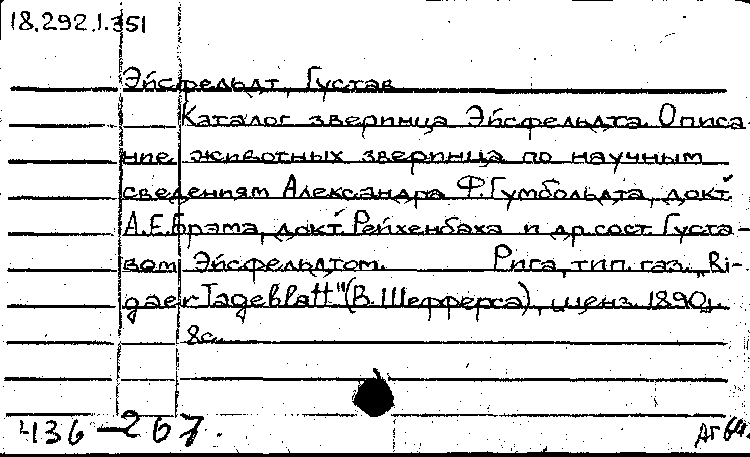 18.292.1.351
Эйсфельдт, Густав
Каталог зверинца Эйсфельдта. Описа-
ние животных зверинца по научным
сведениям Александра Ф. Гумбольдта, докт.
А.Е. Брэма, докт. Рейхенбаха и др. сост. Густа-
вом Эйсфельдтом. Рига, тип. газ. "Ri-
gaer Tageblatt" (В. Шефферса), ценз. 1890 г.
8с.
436-267.